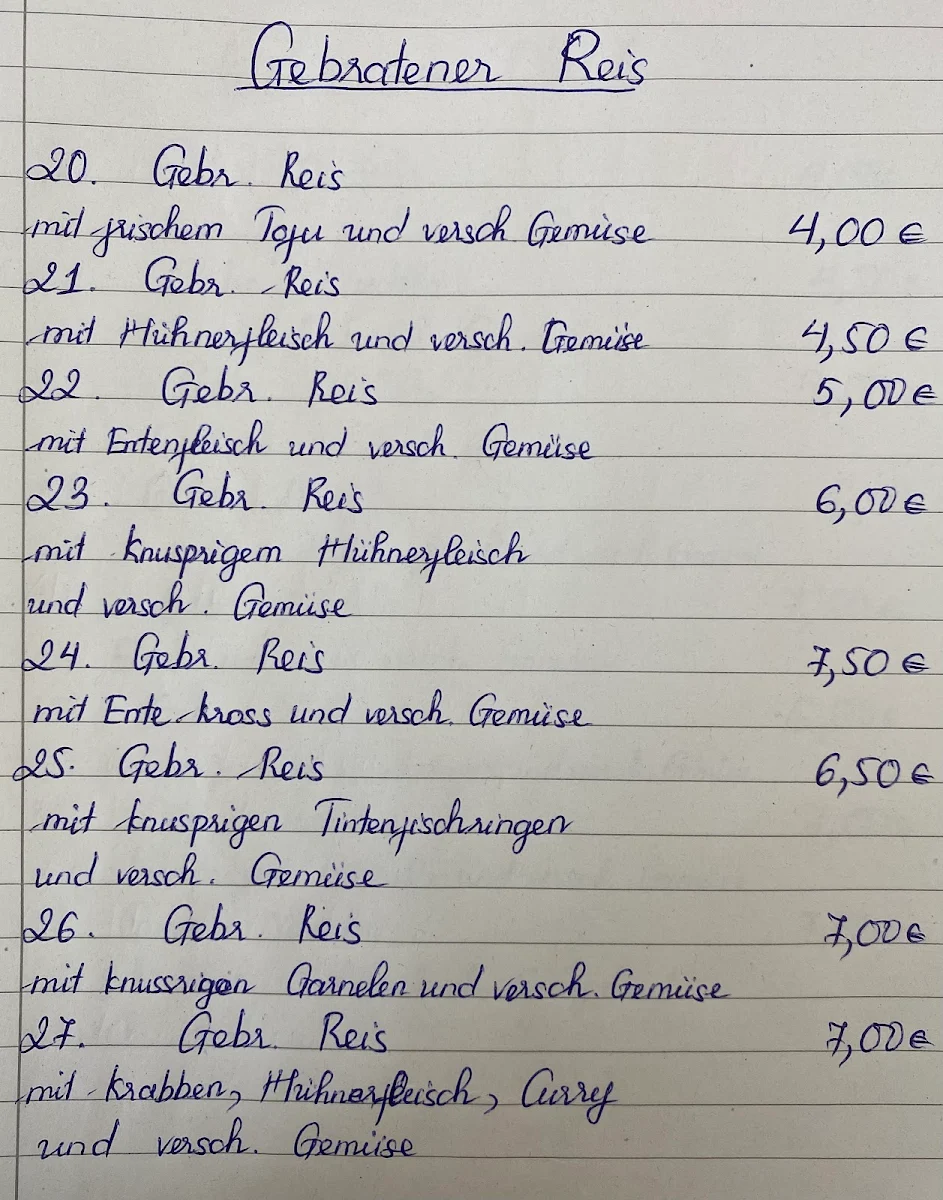 Gebratener Reis
20. Gebr. Reis
mit frischem Tofu und versch Gemüse 4,00 €
21. Gebr. Reis
mit Hühnerfleisch und versch. Gemüse 4,50 €
22. Gebr. Reis 5,00 €
mit Entenfleisch und versch. Gemüse
23. Gebr. Reis 6,00 €
mit knusprigem Hühnerfleisch
und versch. Gemüse
24. Gebr. Reis 7,50 €
mit Ente kross und versch. Gemüse
25. Gebr. Reis 6,50 €
mit knusprigen Tintenfischringen
und versch. Gemüse
26. Gebr. Reis 7,00 €
mit knussrigen Garnelen und versch. Gemüse
27. Gebr. Reis 7,00 €
mit Krabben, Hühnerfleisch, Curry
und versch. Gemüse